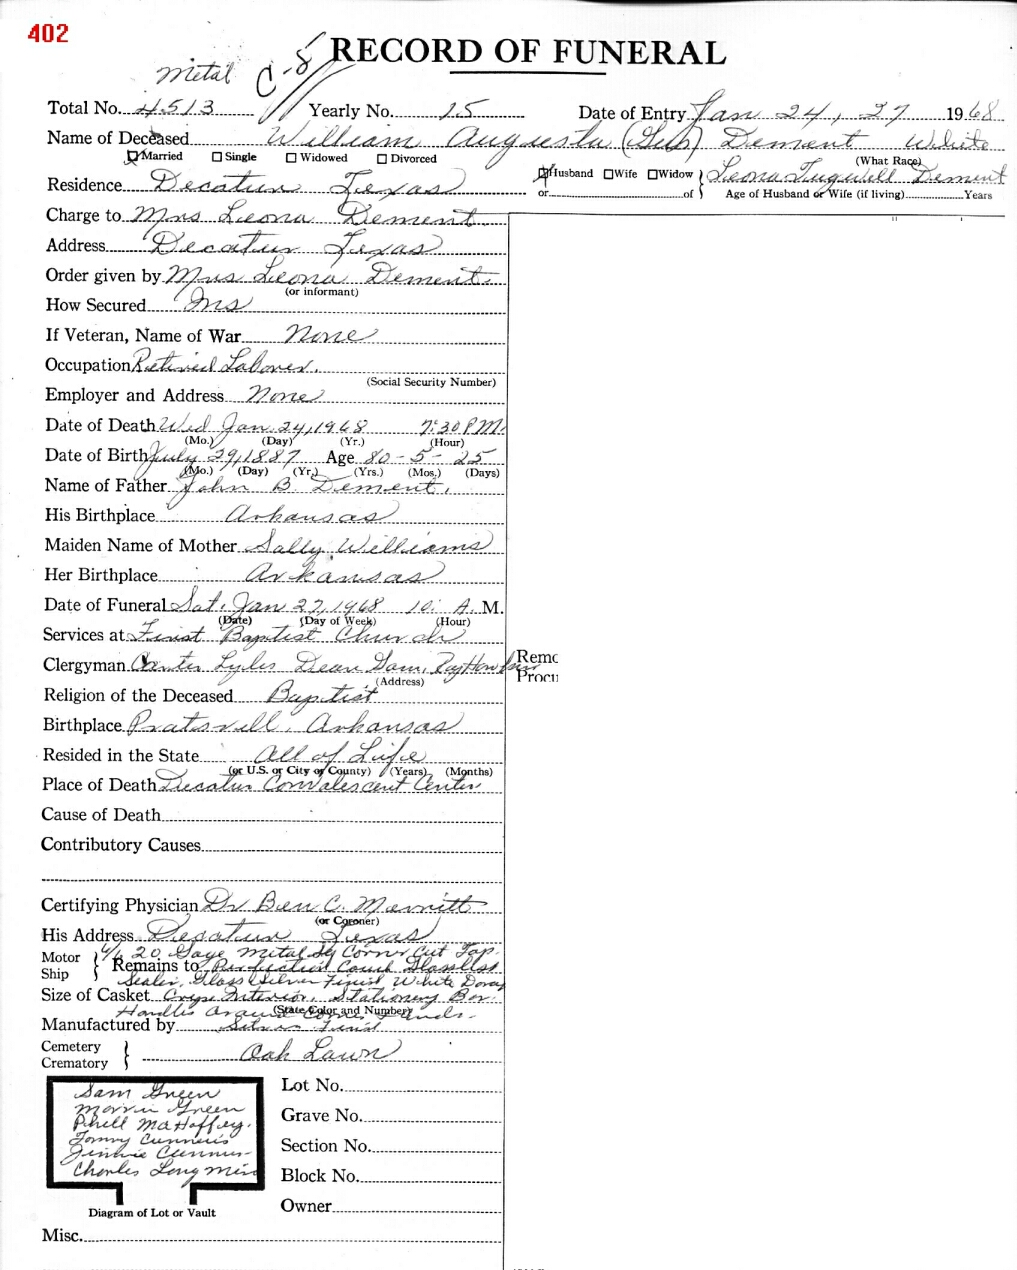 402
RECORD OF FUNERAL
Metal C-8
Total No. 4513 Yearly No. 15 Date of Entry Jan 24, 27 1968
Name of Deceased William Augusta (Gus) Dement White
Married Single Widowed Divorced (What Race)
Residence Decatur Texas Husband Wife Widow } Leona Tugwell Dement
or of Age of Husband or Wife (if living) Years
Charge to Mrs Leona Dement
Address Decatur Texas
Order given by Mrs Leona Dement
(or informant)
How Secured Ins
If Veteran, Name of War None
Occupation Retired Laborer.
(Social Security Number)
Employer and Address None
Date of Death Wed Jan 24, 1968 7:30 P.M.
(Mo.) (Day) (Yr.) (Hour)
Date of Birth July 29, 1887 Age 80-5-25
(Mo.) (Day) (Yr.) (Yrs.) (Mos.) (Days)
Name of Father John B. Dement.
His Birthplace Arkansas
Maiden Name of Mother Sally Williams
Her Birthplace Arkansas
Date of Funeral Sat. Jan 27, 1968 10: A. M.
(Date) (Day of Week) (Hour)
Services at First Baptist Church
Clergyman Lyles Dean Ray Remo
(Address) Procu
Religion of the Deceased Baptist
Birthplace Arkansas
Resided in the State All of Life
(or U.S. or City or County) (Years) (Months)
Place of Death Decatur Convalescent Center
Cause of Death
Contributory Causes
Certifying Physician Dr Ben C. Merritt
(or Coroner)
His Address Decatur Texas
Motor Ship { 20 Gage Metal Sq Corner Cut Top
Remains to Perfection Couch Glassless
Sealer, Gloss Silver Finish White
Size of Casket Crepe Interior, Stationery Bar
Handles around
(State Color and Number)
Manufactured by
Cemetery Crematory } Oak Lawn
Sam Green
Green
Phill McHaffey.
Tommy
Jimmie
Charles Long
Lot No.
Grave No.
Section No.
Block No.
Owner
Diagram of Lot or Vault
Misc.